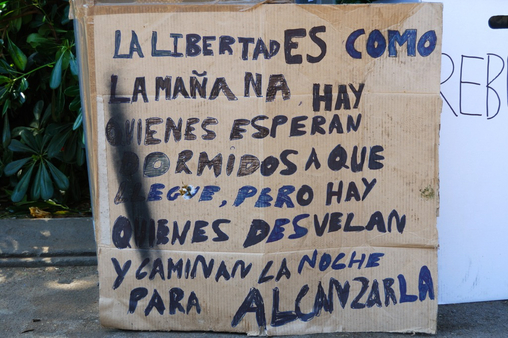 LA LIBERTAD ES COMO
LA MAÑANA, HAY
QUIENES ESPERAN
DORMIDOS A QUE
LLEGUE, PERO HAY
QUIENES DESVELAN
Y CAMINAN LA NOCHE
PARA ALCANZARLA
REB